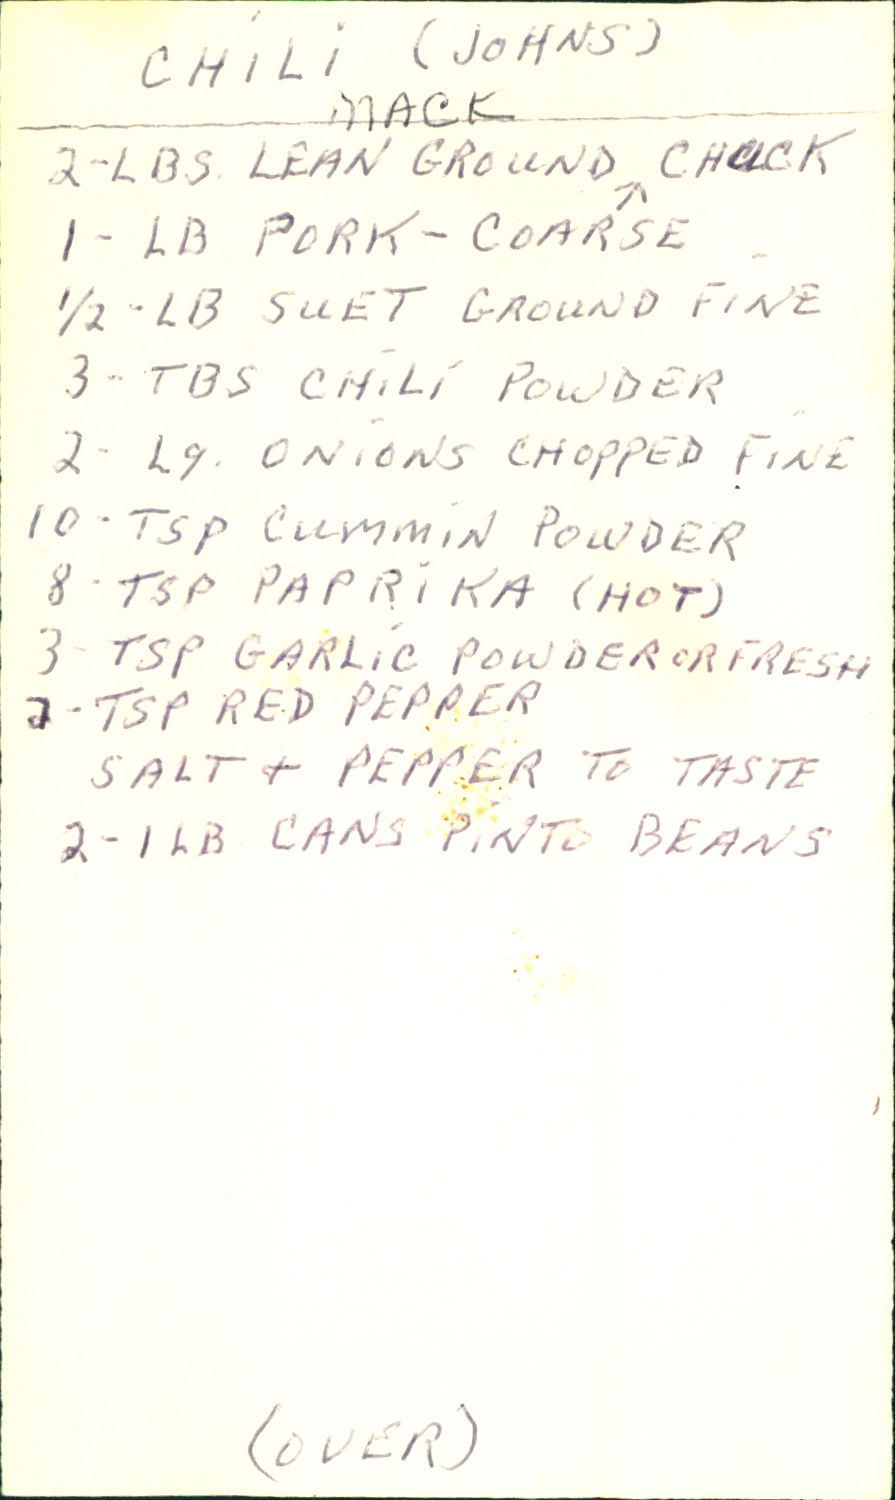 CHILI (JOHNS)
MACK
2-LBS. LEAN GROUND CHUCK
↑
1 - LB PORK - COARSE
1/2 - LB SUET GROUND FINE
3 - TBS CHILI POWDER
2 - Lg. ONIONS CHOPPED FINE
10 - TSP CUMMIN POWDER
8 - TSP PAPRIKA (HOT)
3 - TSP GARLIC POWDER OR FRESH
2 - TSP RED PEPPER
SALT + PEPPER TO TASTE
2 - 1 LB CANS PINTO BEANS
(OVER)